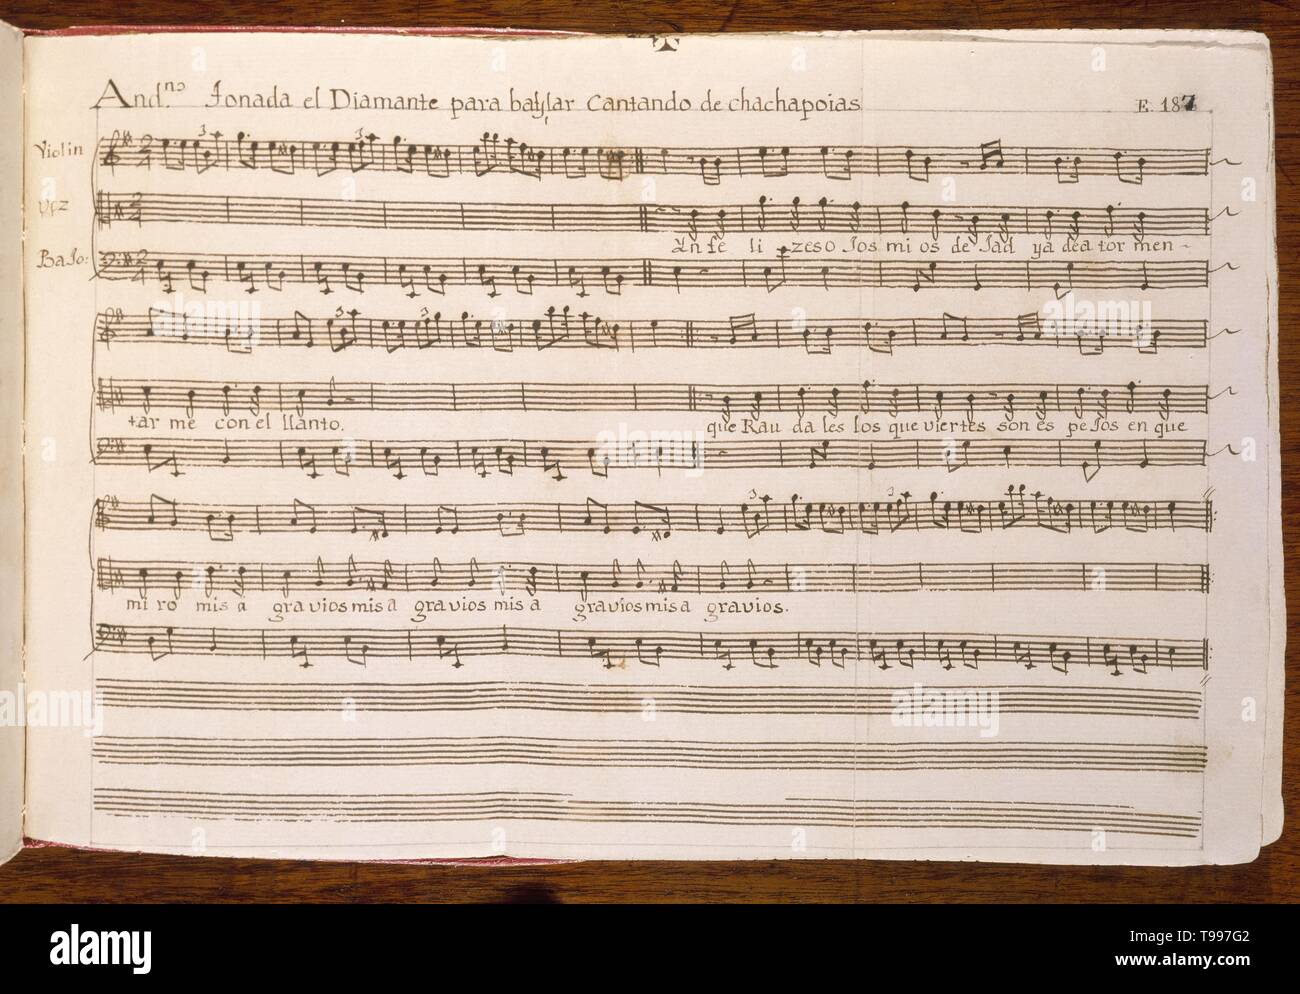 And.no Tonada el Diamante para baylar Cantando de chachapoias E. 187
Violin
Voz
Baxo:
Ynfe li zes o Jos mi os de Jad ya de a tor men-
tar me con el llanto. que Rau da les los que viertes son es pe Jos en que
mi ro mis a gra vios mis a gra vios mis a gra vios mis a gra vios.
alamy
Image ID: T997G2
www.alamy.com